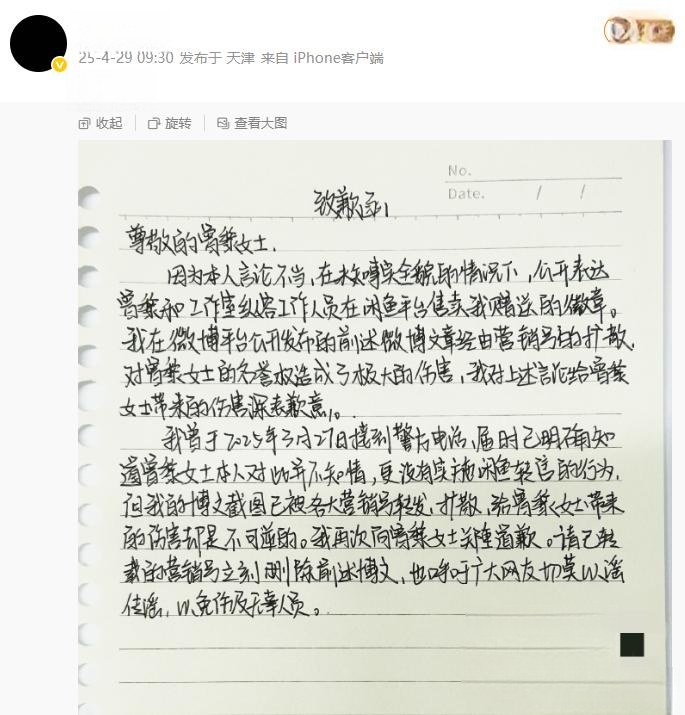 25-4-29 09:30 发布于 天津 来自 iPhone客户端
收起 旋转 查看大图
No.
Date. / /
致歉函
尊敬的曾黎女士.
因为本人言论不当,在未得实全貌的情况下,公开表达
曾黎和工作室级客工作人员在闲鱼平台售卖我赠送的徽章。
我在微博平台公开发布的前述微博文章经由营销号的扩散,
对曾黎女士的名誉权造成了极大的伤害,我对上述言论给曾黎
女士带来的伤害深表歉意。
我曾于2025年3月27日接到警方电话,届时已明确知
道曾黎女士本人对此并不知情,更没有实施闲鱼转售的行为,
但我的博文截图已被各大营销号转发、扩散,给曾黎女士带来
的伤害却是不可逆的。我再次向曾黎女士关注道歉。请已转
载的营销号立刻删除前述博文,也呼吁广大网友切莫以谣
传谣,以免伤及无辜人员。